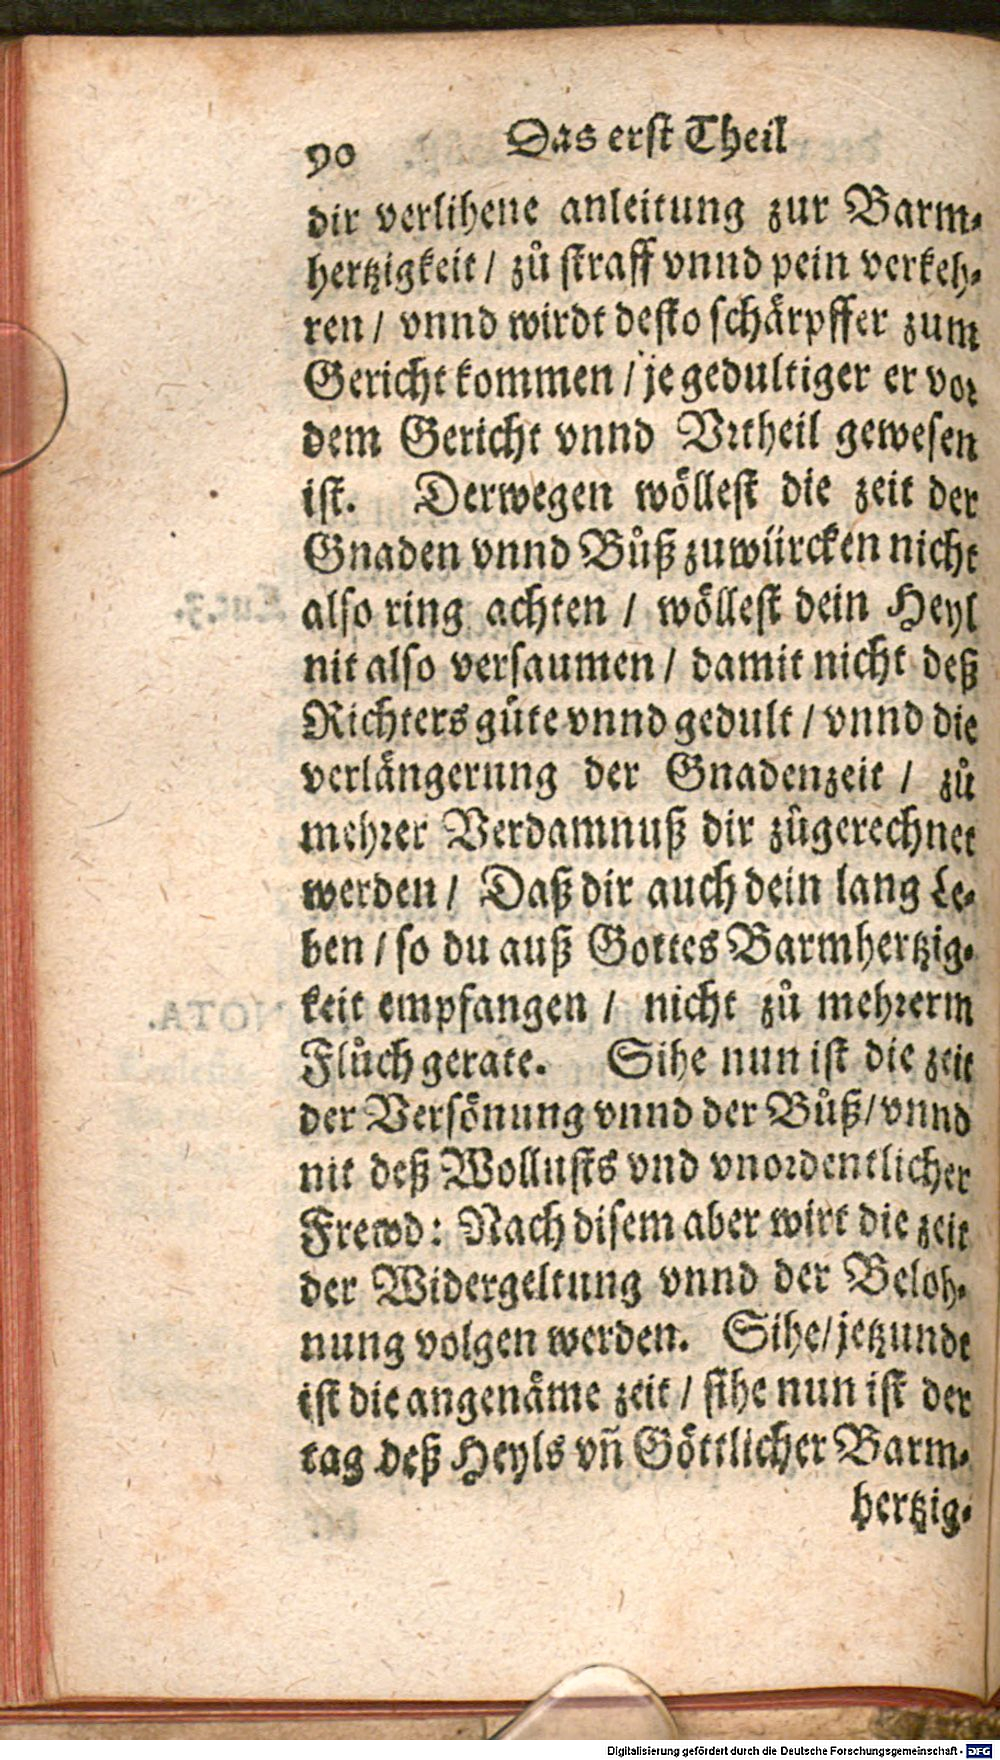 90 Das erst Theil
dir verlihene anleitung zur Barm-
hertzigkeit / zů straff vnnd pein verkeh-
ren / vnnd wirdt desto schärpffer zum
Gericht kommen / je gedultiger er vor
dem Gericht vnnd Vrtheil gewesen
ist. Derwegen wöllest die zeit der
Gnaden vnnd Bůß zuwürcken nicht
also ring achten / wöllest dein Heyl
nit also versaumen / damit nicht deß
Richters güte vnnd gedult / vnnd die
verlängerung der Gnadenzeit / zů
mehrer Verdamnuß dir zůgerechnet
werden / Daß dir auch dein lang Le-
ben / so du auß Gottes Barmhertzig-
keit empfangen / nicht zů mehrerm
Flůch gerate. Sihe nun ist die zeit
der Versönung vnnd der Bůß / vnnd
nit deß Wollusts vnd vnordentlicher
Frewd: Nach disem aber wirt die zeit
der Widergeltung vnnd der Beloh-
nung volgen werden. Sihe / jetzundt
ist die angenäme zeit / sihe nun ist der
tag deß Heyls vñ Göttlicher Barm-
hertzig-
Digitalisierung gefördert durch die Deutsche Forschungsgemeinschaft - DFG